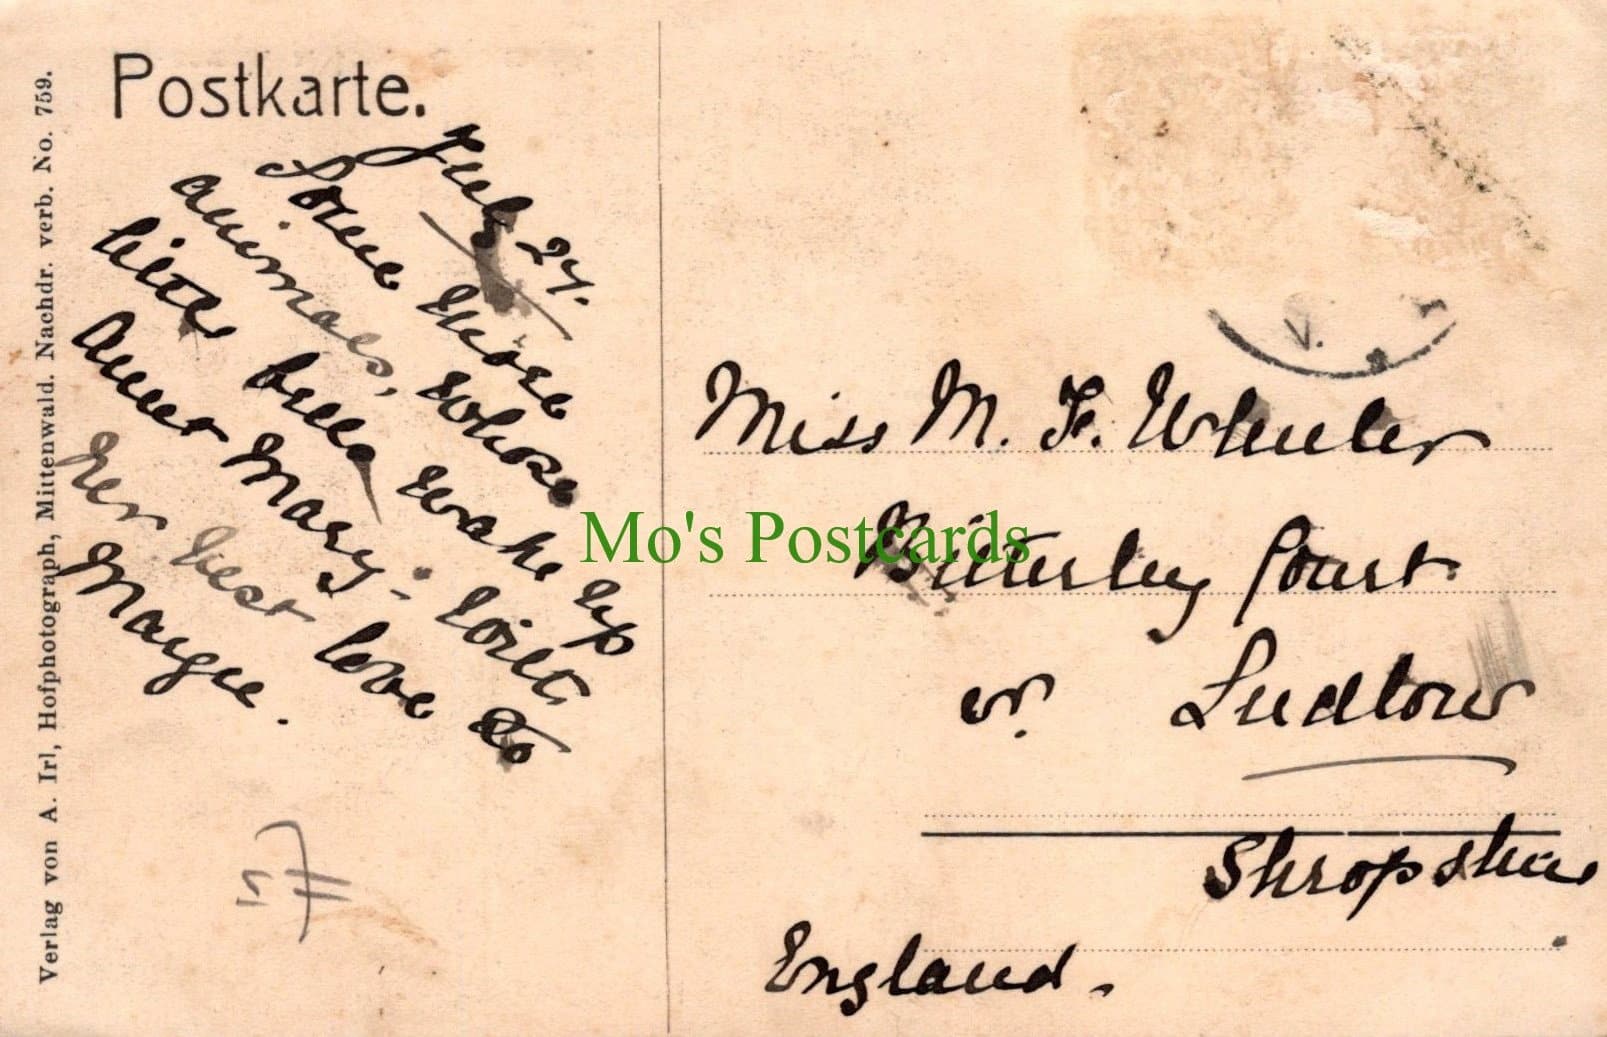 Postkarte.
July 24.
Some more
animals, whose
little bells wake up
Aunt Mary: with
her best love to
Margie.
Verlag von A. Irl, Hofphotograph, Mittenwald. Nachdr. verb. No. 759.
Miss M. F. Wheeler
Bitterley Court
nr. Ludlow
Shropshire
England.
Mo's Postcards
V.